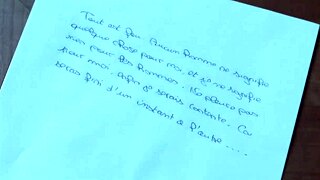 Tout est fini. Aucun homme ne signifie
quelque chose pour moi, et je ne signifie
rien pour les hommes. Ne pleure pas
pour moi. Enfin je serais contente. Ca
sera fini d'un instant à l'autre.....